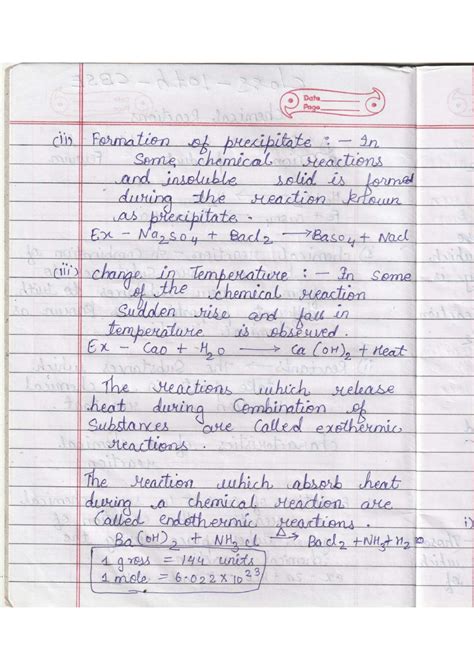 Date
Page
(ii) Formation of precipitate : – In
some chemical reactions
and insoluble solid is formed
during the reaction known
as precipitate.
Ex – Na2SO4 + Bacl2 → BaSO4 + Nacl
(iii) change in Temperature : – In some
of the chemical reaction
Sudden rise and fall in
temperature is observed.
Ex – CaO + H2O → Ca(OH)2 + Heat
The reactions which release
heat during Combination of
Substances are Called exothermic
reactions.
The reation which absorb heat
during a chemical reaction are
Called endothermic reactions.
Ba(OH)2 + NH4cl △→ Bacl2 + NH3 + H2O
1 gross = 144 units
1 mole = 6.022 × 10^23